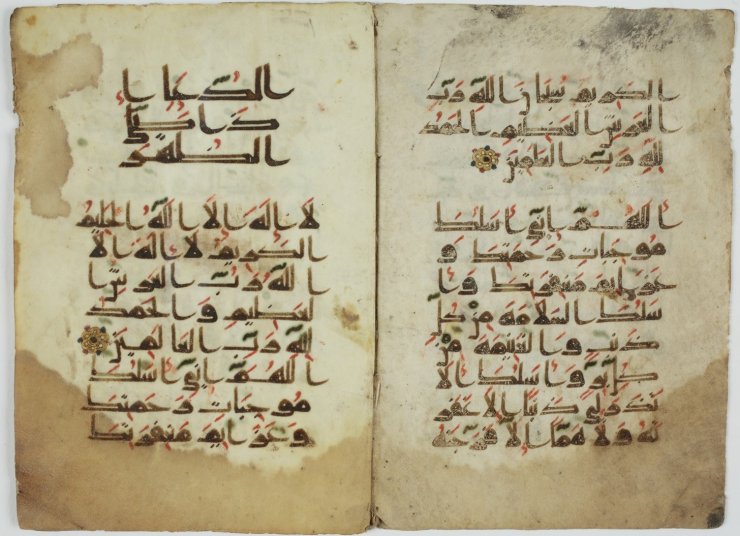 الكريم سبحن الله رب
العرش العظيم الحمد
لله رب العلمين
اللهم اني اسلك
موجبات رحمتك و
عزايم مغفرتك وا
سلك السلامه من كل
ذنب والغنيمه من
كل بر واسلك الا
تدع لي ذنبا الا غفر
ته ولا هما الا فرجته
الدعا ا
لا اله الا الله الحليم
الكريم لا اله الا
الله رب العرش
العظيم والحمد
لله رب العالمين
اللهم اني اسلك
موجبات رحمتك
وعزايم مغفرتك